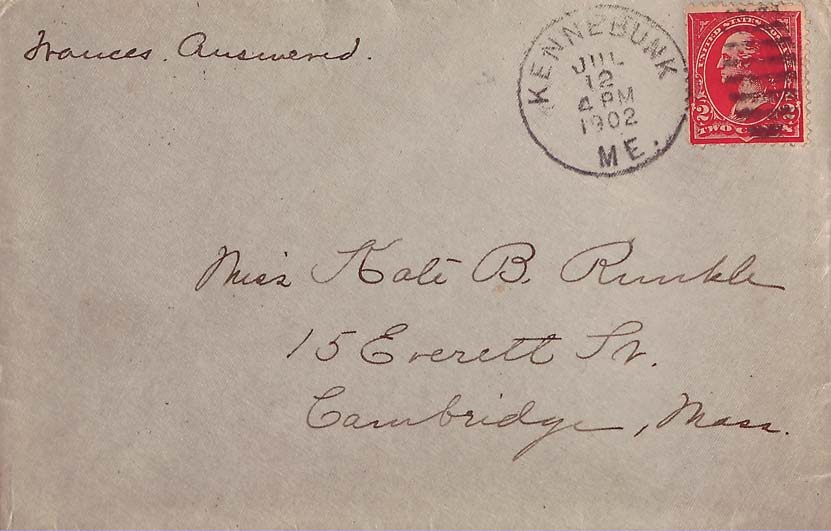 Frances. Answered.
KENNEBUNK
JUL
12
4 PM
1902
ME.
UNITED STATES
2 2
TWO
Miss Kate B. Runkle
15 Everett St.
Cambridge, Mass.